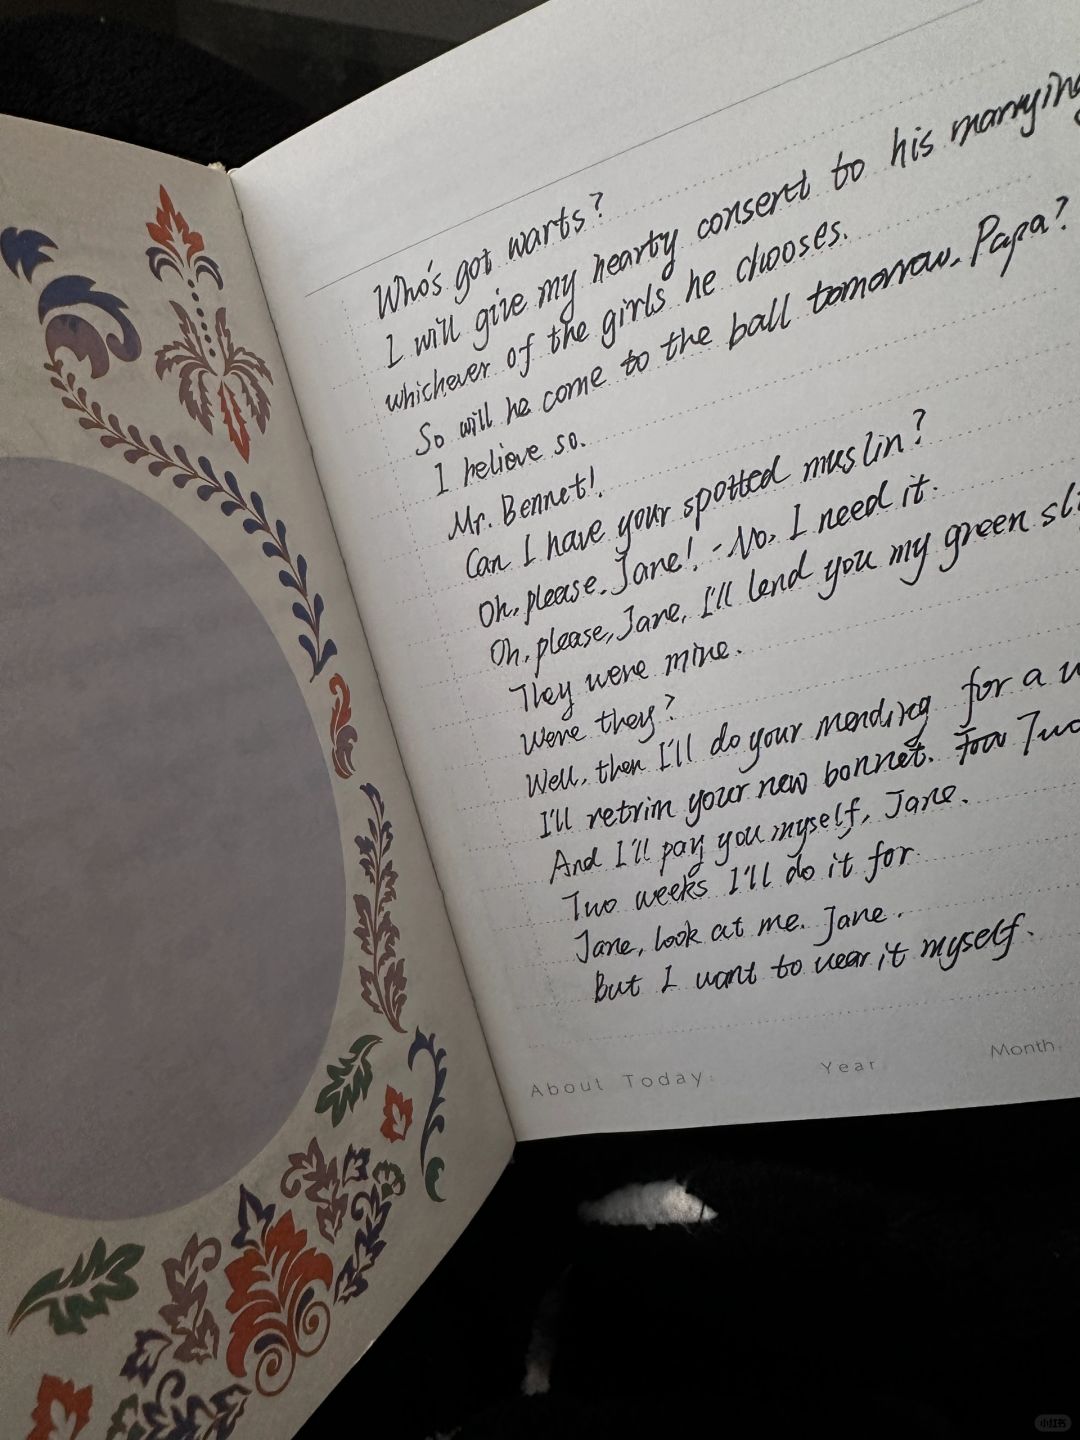 Who's got warts?
I will give my hearty consent to his marrying
whichever of the girls he chooses.
So will he come to the ball tomorrow, Papa?
I believe so.
Mr. Bennet!
Can I have your spotted muslin?
Oh, please, Jane! - No, I need it.
Oh, please, Jane, I'll lend you my green
They were mine.
Were they?
Well, then I'll do your mending for a
I'll retrim your new bonnet. Two
And I'll pay you myself, Jane.
Two weeks I'll do it for.
Jane, look at me. Jane.
But I want to wear it myself.
About Today: Year Month
小红书